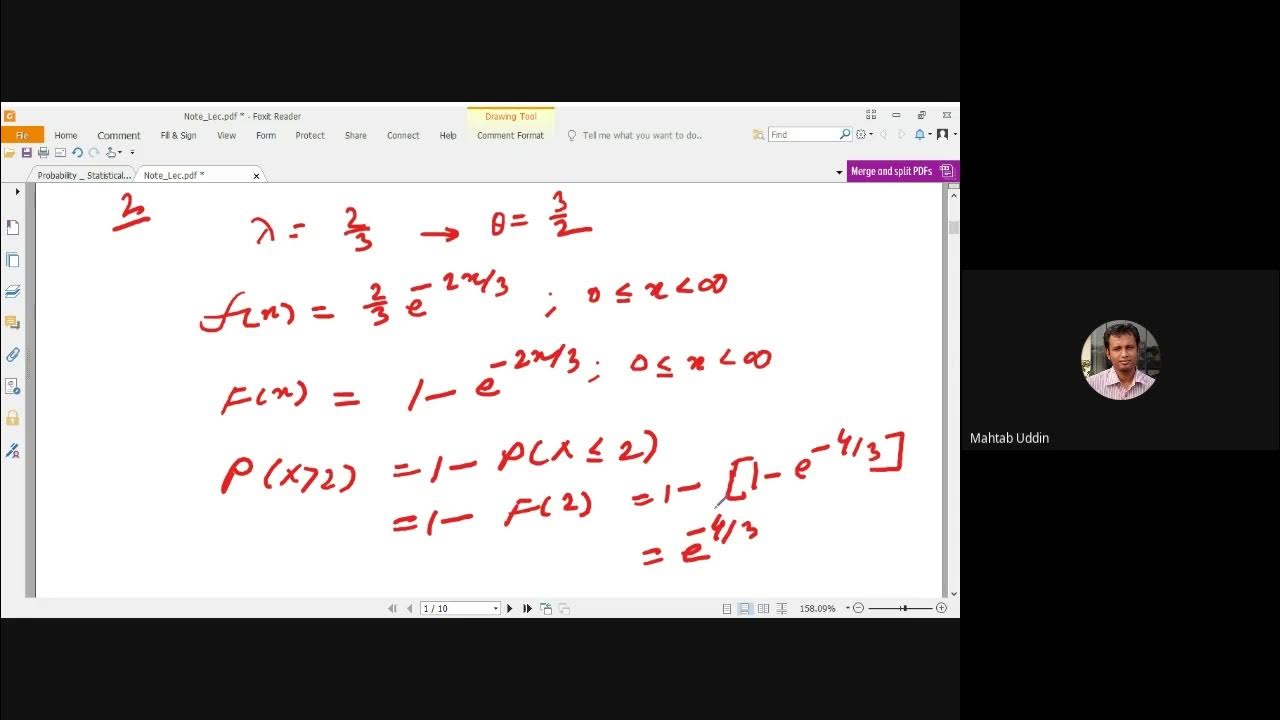 Note_Lec.pdf * - Foxit Reader
Drawing Tool
File Home Comment Fill & Sign View Form Protect Share Connect Help Comment Format Tell me what you want to do.. Find
Probability _ Statistical... Note_Lec.pdf * x Merge and split PDFs
2
λ = 2/3 → θ = 3/2
f(x) = 2/3 e^{-2x/3} ; 0 ≤ x < ∞
F(x) = 1 - e^{-2x/3} ; 0 ≤ x < ∞
P(X>2) = 1 - P(X ≤ 2)
= 1 - F(2) = 1 - [1 - e^{-4/3}]
= e^{-4/3}
1 / 10 158.09%
Mahtab Uddin